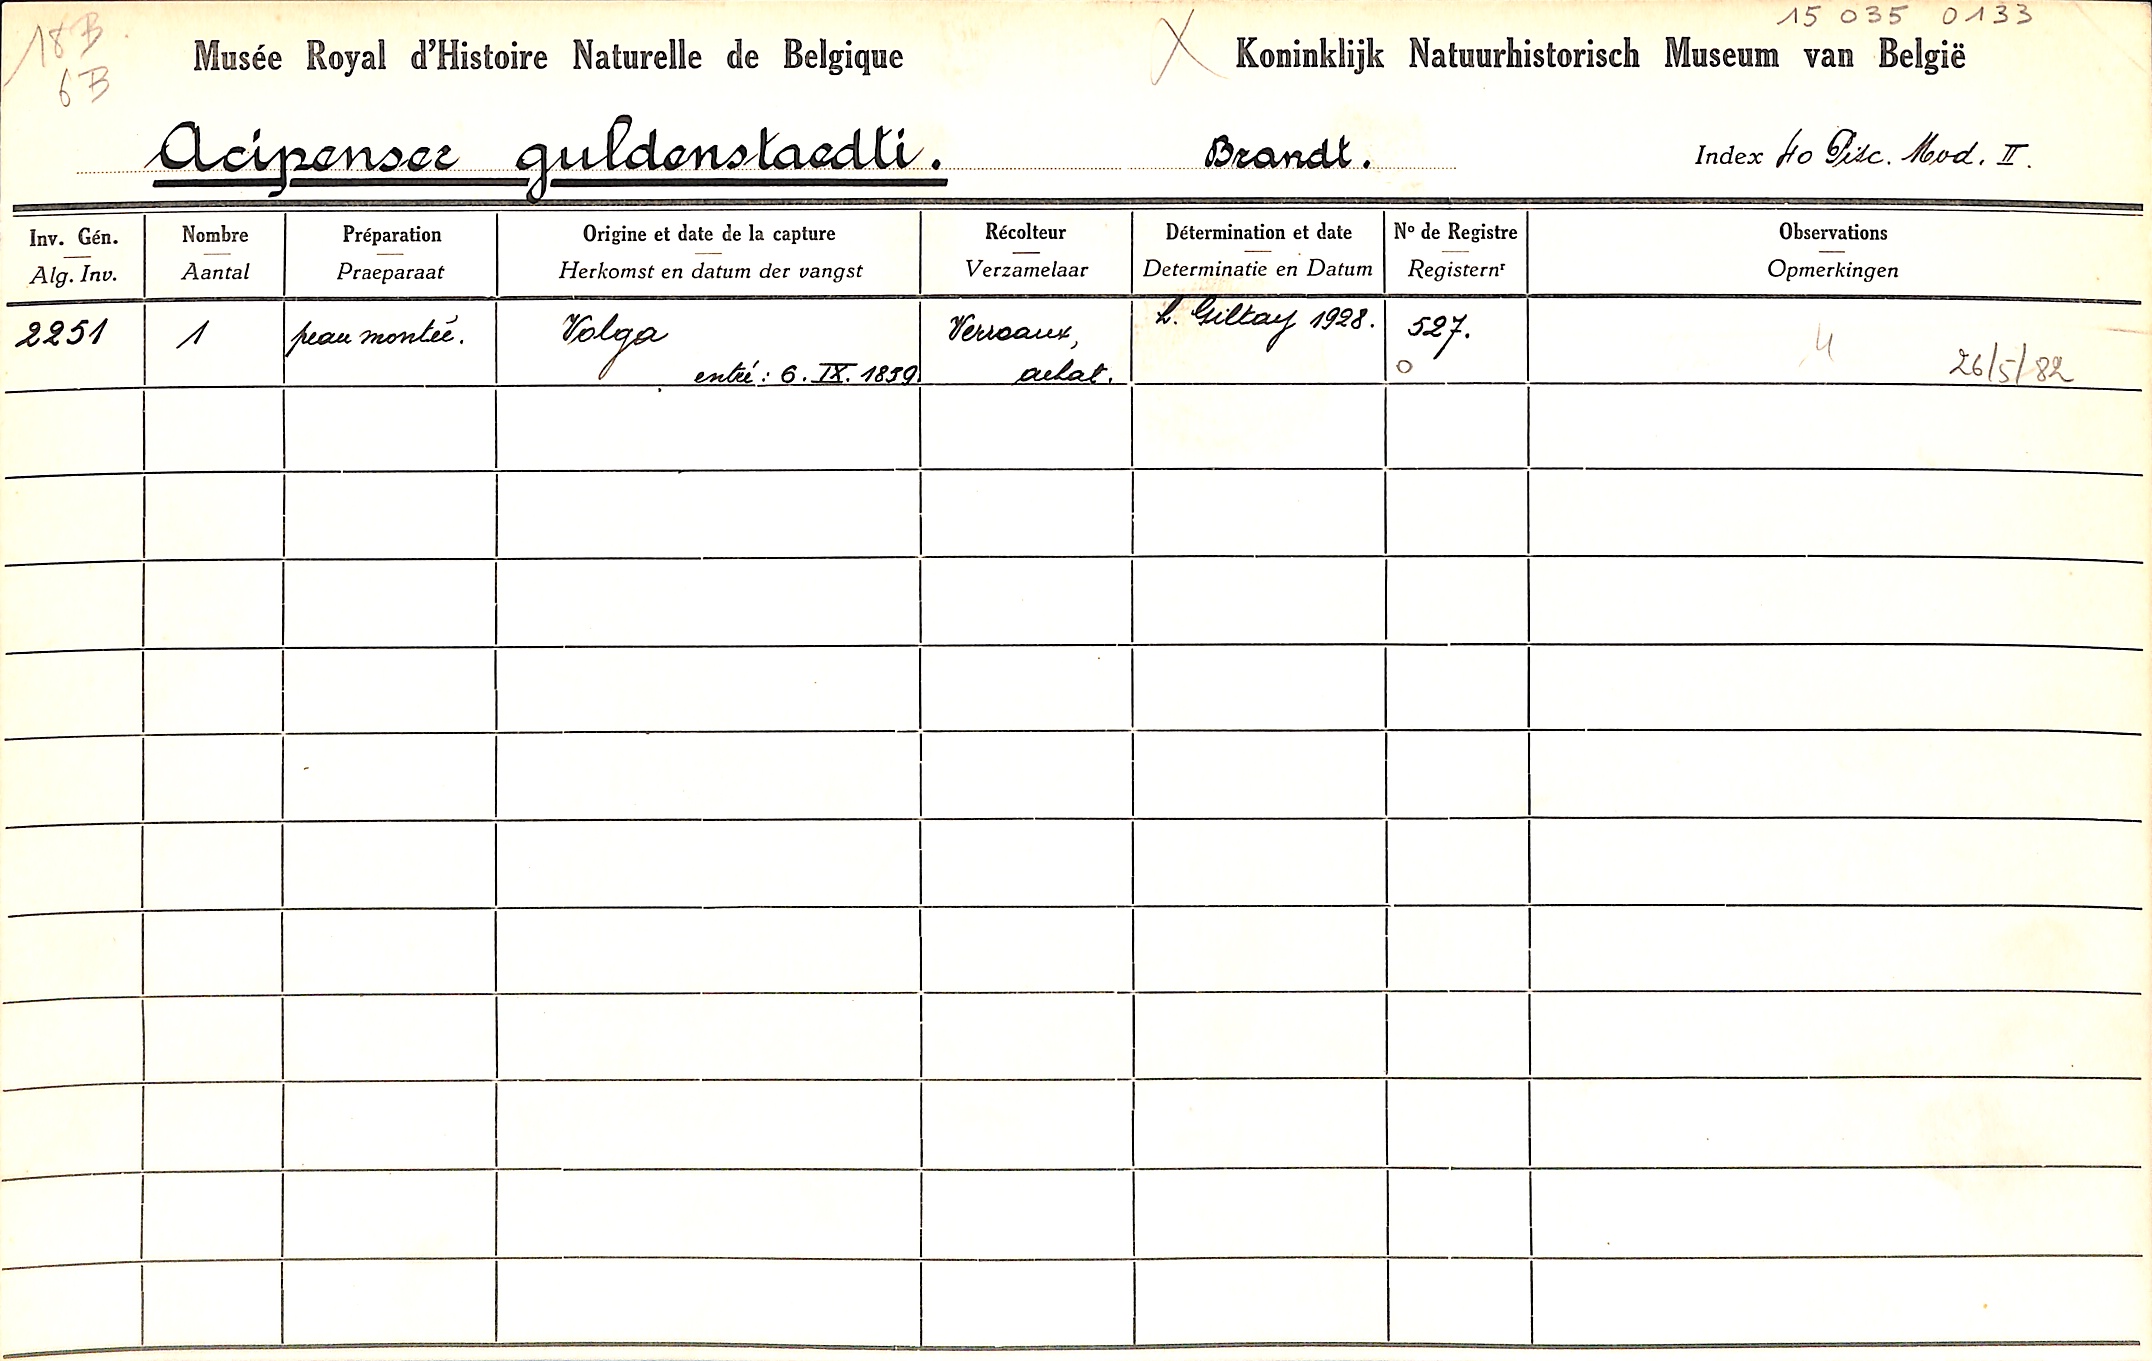 15 035 0133
18B
6B
Musée Royal d'Histoire Naturelle de Belgique
X
Koninklijk Natuurhistorisch Museum van België
Acipenser guldenstaedti.
Brandt.
Index 40 Pisc. Mod. II.
Inv. Gén.
Alg. Inv.
Nombre
Aantal
Préparation
Praeparaat
Origine et date de la capture
Herkomst en datum der vangst
Récolteur
Verzamelaar
Détermination et date
Determinatie en Datum
Nº de Registre
Registernr
Observations
Opmerkingen
2251
1
peau montée.
Volga
entré: 6. IX. 1859.
Verreaux,
achat.
L. Giltay 1928.
527.
o
26/5/82